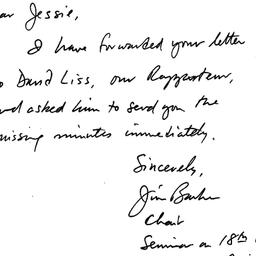 ar Jessie,
I have forwarded your letter
o David Liss, our Rapporteur,
nd asked him to send you the
missing minutes immediately.
Sincerely,
Jim
Chair
Seminar on 18th